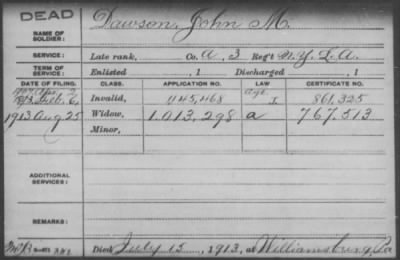 DEAD
NAME OF SOLDIER: Dawson, John M.
SERVICE: Late rank, Co. A, 3 Reg't N.Y. L.A.
TERM OF SERVICE: Enlisted , 1 Discharged , 1
DATE OF FILING. CLASS. APPLICATION NO. LAW CERTIFICATE NO.
Feb. 6, Invalid, 445,468 I 861,325
1913 Aug 25 Widow, 1.013,298 a 767,513
Minor,
ADDITIONAL SERVICES:
REMARKS:
Died July 15, 1913, at Williamsburg, Pa